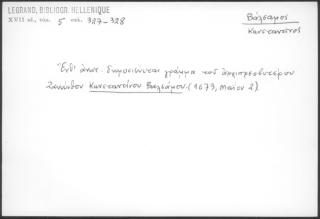 LEGRAND, BIBLIOGR. HELLENIQUE
XVII al, τόμ. 5 σελ. 327-328
Βάλσαμος
Κωνσταντῖνος
Ἔνθ' ἀνωτ. δημοσιεύεται γράμμα τοῦ ἀρχιπρεσβυτέρου
Ζακύνθου Κωνσταντίνου Βαλσάμου. (1673, Μαΐου 2).